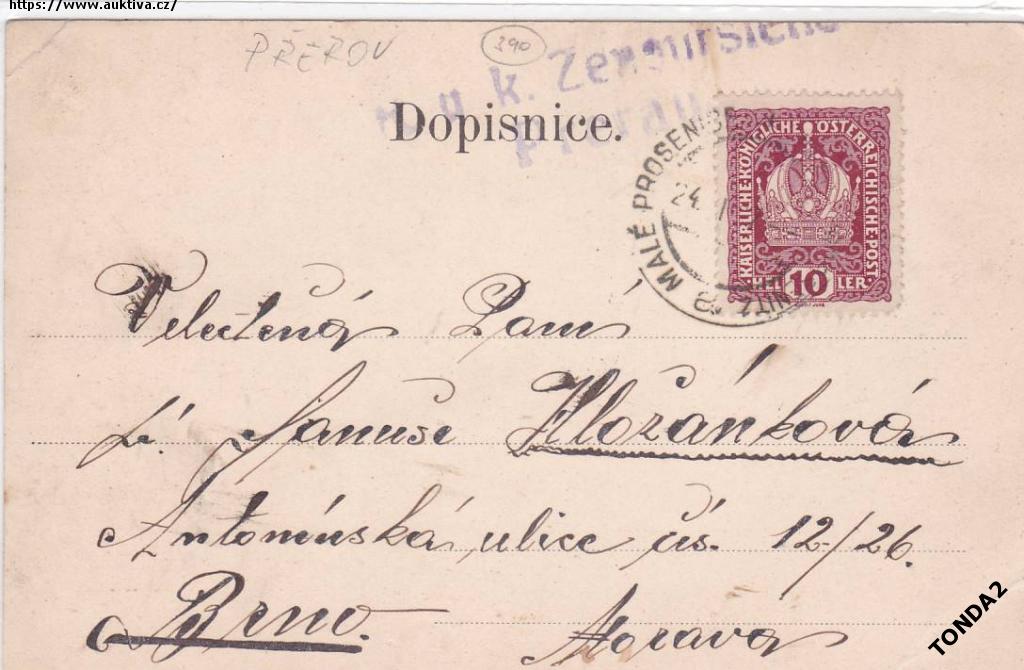 https://www.auktiva.cz/
PŘEROV
390
k. u. k. Zensursteile
Dopisnice.
MALÉ PROSENICE
24
KAISERLICHE KÖNIGLICHE ÖSTERREICHISCHE POST
HEL 10 LER
Velectěná Paní
Hložánková
Antonínská ulice čís. 12/26.
Brno.
Morava
TONDA2